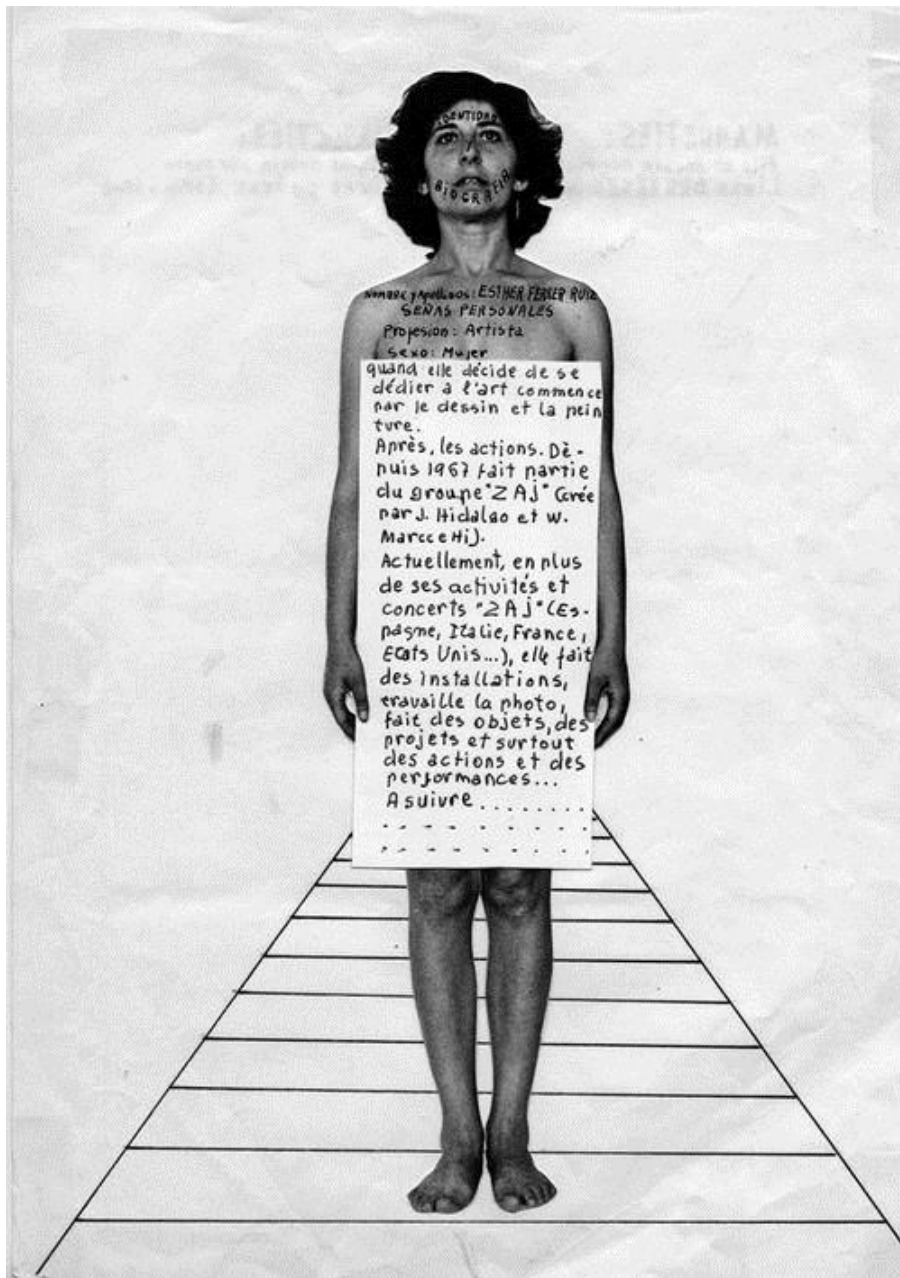 IDENTIDAD
BIOGRAFIA
Nombre y Apellidos: ESTHER FERRER RUIZ
SEÑAS PERSONALES
Profesion: Artista
Sexo: Mujer
quand elle décide de se
dédier a l'art commence
par le dessin et la pein
ture.
Après, les actions. Dè-
puis 1967 fait partie
du groupe "ZAj" (crée
par J. Hidalgo et W.
MarcceHi).
Actuellement, en plus
de ses activités et
concerts "ZAj" (Es-
pagne, Italie, France,
Etats Unis...), elle fait
des installations,
travaille la photo,
fait des objets, des
projets et surtout
des actions et des
performances...
A suivre........
. . . . . . . .
. . . . . . . .